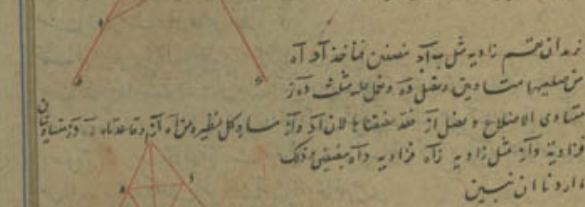 نريد ان نقسم زاوية مثل ب آ د بنصفين فناخذ آ د آ ه
من ضلعيها متساويين ونصل د ه ونعمل عليه مثلث د ه ز
متساوى الاضلاع ونصل آ ز فقد نصفناها لان آ د و آ ز مساو كل نظيره من آ ه آ ز وقاعدتاه د ز ه ز متساويتان
فزاوية د آ ز مثل زاوية ز آ ه فزاوية د آ ه بنصفين وذلك
ما اردنا ان نبين